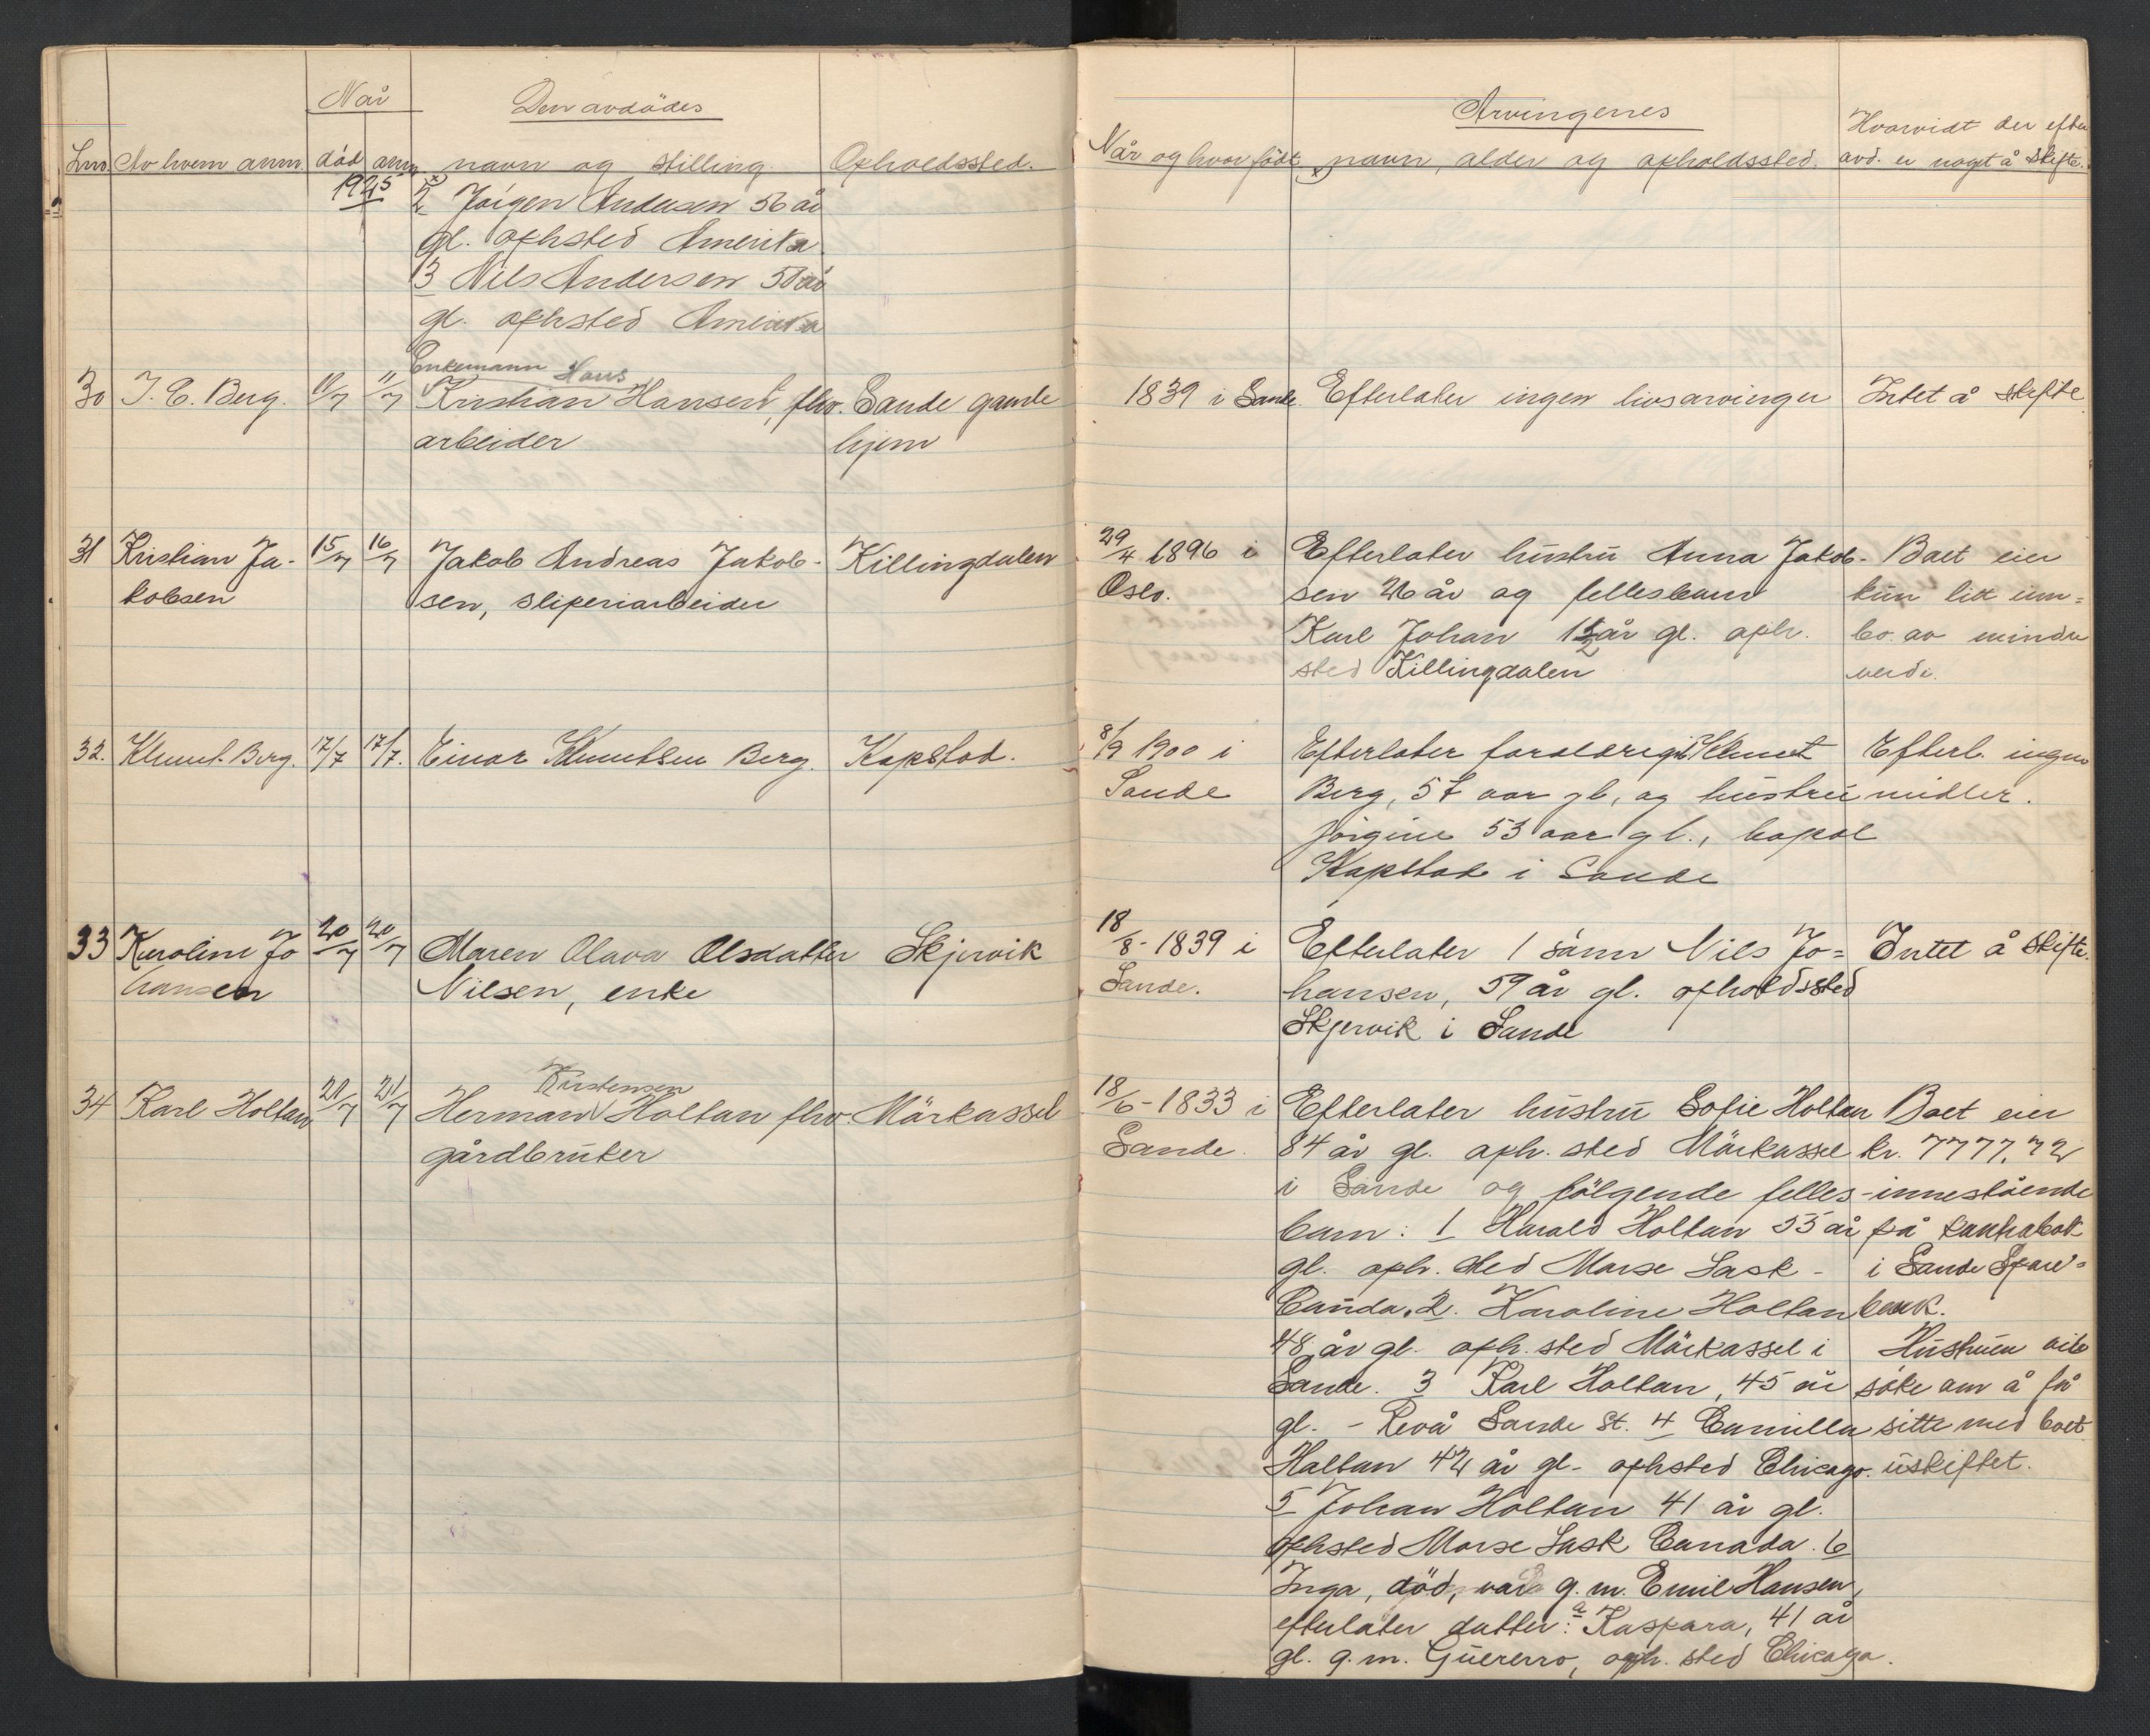 Når
Den avdödes
Lnr. Av hvem anm. död anm. navn og stilling. Opholdssted.
1925
x) 2 Jörgen Andersen 56 år
gl. ophsted Amerika
13 Nils Andersen 50 år
gl. ophsted Amerika
Enkemann Hans
30 J. C. Berg. 11/7 11/7 Kristian Hansen, fhv. Sande gamle
arbeider hjem
31 Kristian Ja- 15/7 16/7 Jakob Andreas Jakob- Killingdalen
kobsen sen, sliperiarbeider
32. Khnut Berg. 17/7 17/7. Einar Khnutsen Berg. Kapstad.
33 Karoline Jo 20/7 20/7 Maren Olava Olsdatter Skjervik
hansen Nilsen, enke
Kristensen
34 Karl Holtan 21/7 21/7 Herman Holtan fhv. Märkassel
gårdbruker
Arvingenes
Hvorvidt der efter
Når og hvor födt x) navn, alder og opholdssted. avd. er noget å skifte.
1839 i Sande. Efterlater ingen livsarvinger Intet å skifte
29/4 1896 i Efterlater hustru Anna Jakob- Boet eier
Oslo. sen 26 år og fellesbarn kun litt inn=
Karl Johan 1 1/2 år gl. oph. bo. av mindre
sted Killingdalen verdi.
8/9 1900 i Efterlater foraldrene Khnut Efterl. ingen
Sande Berg, 57 aar gl, og hustru midler.
Jörgine 53 aar gl., bopæl
Kapstad i Sande
18/8 - 1839 i Efterlater 1 sönn Nils Jo= Intet å skifte.
Sande. hansen, 59 år gl. opholdssted
Skjervik i Sande
18/6 - 1833 i Efterlater hustru Sofie Holtan Boet eier
Sande. 84 år gl. oph. sted Märkassel kr. 7777,72
i Sande og fölgende felles- innestående
barn: 1 Harald Holtan 55 år på kontrabok
gl. oph. sted Morse Sask - i Sande Spare=
Canda. 2. Karoline Holtan bank.
48 år gl. oph. sted Märkassel i Hustruen vil
Sande. 3 Karl Holtan, 45 år söke om å få
gl. - Revå Sande St. 4 Camilla sitte med boet
Holtan 42 år gl- ophsted Chicago. uskiftet.
5 Johan Holtan 41 år gl.
ophsted Morse Sask Canada. 6
Inga, död, var g. m. Emil Hansen,
efterlater datter: a Kaspara, 41 år
gl. g. m. Guererro, oph. sted Chicago.